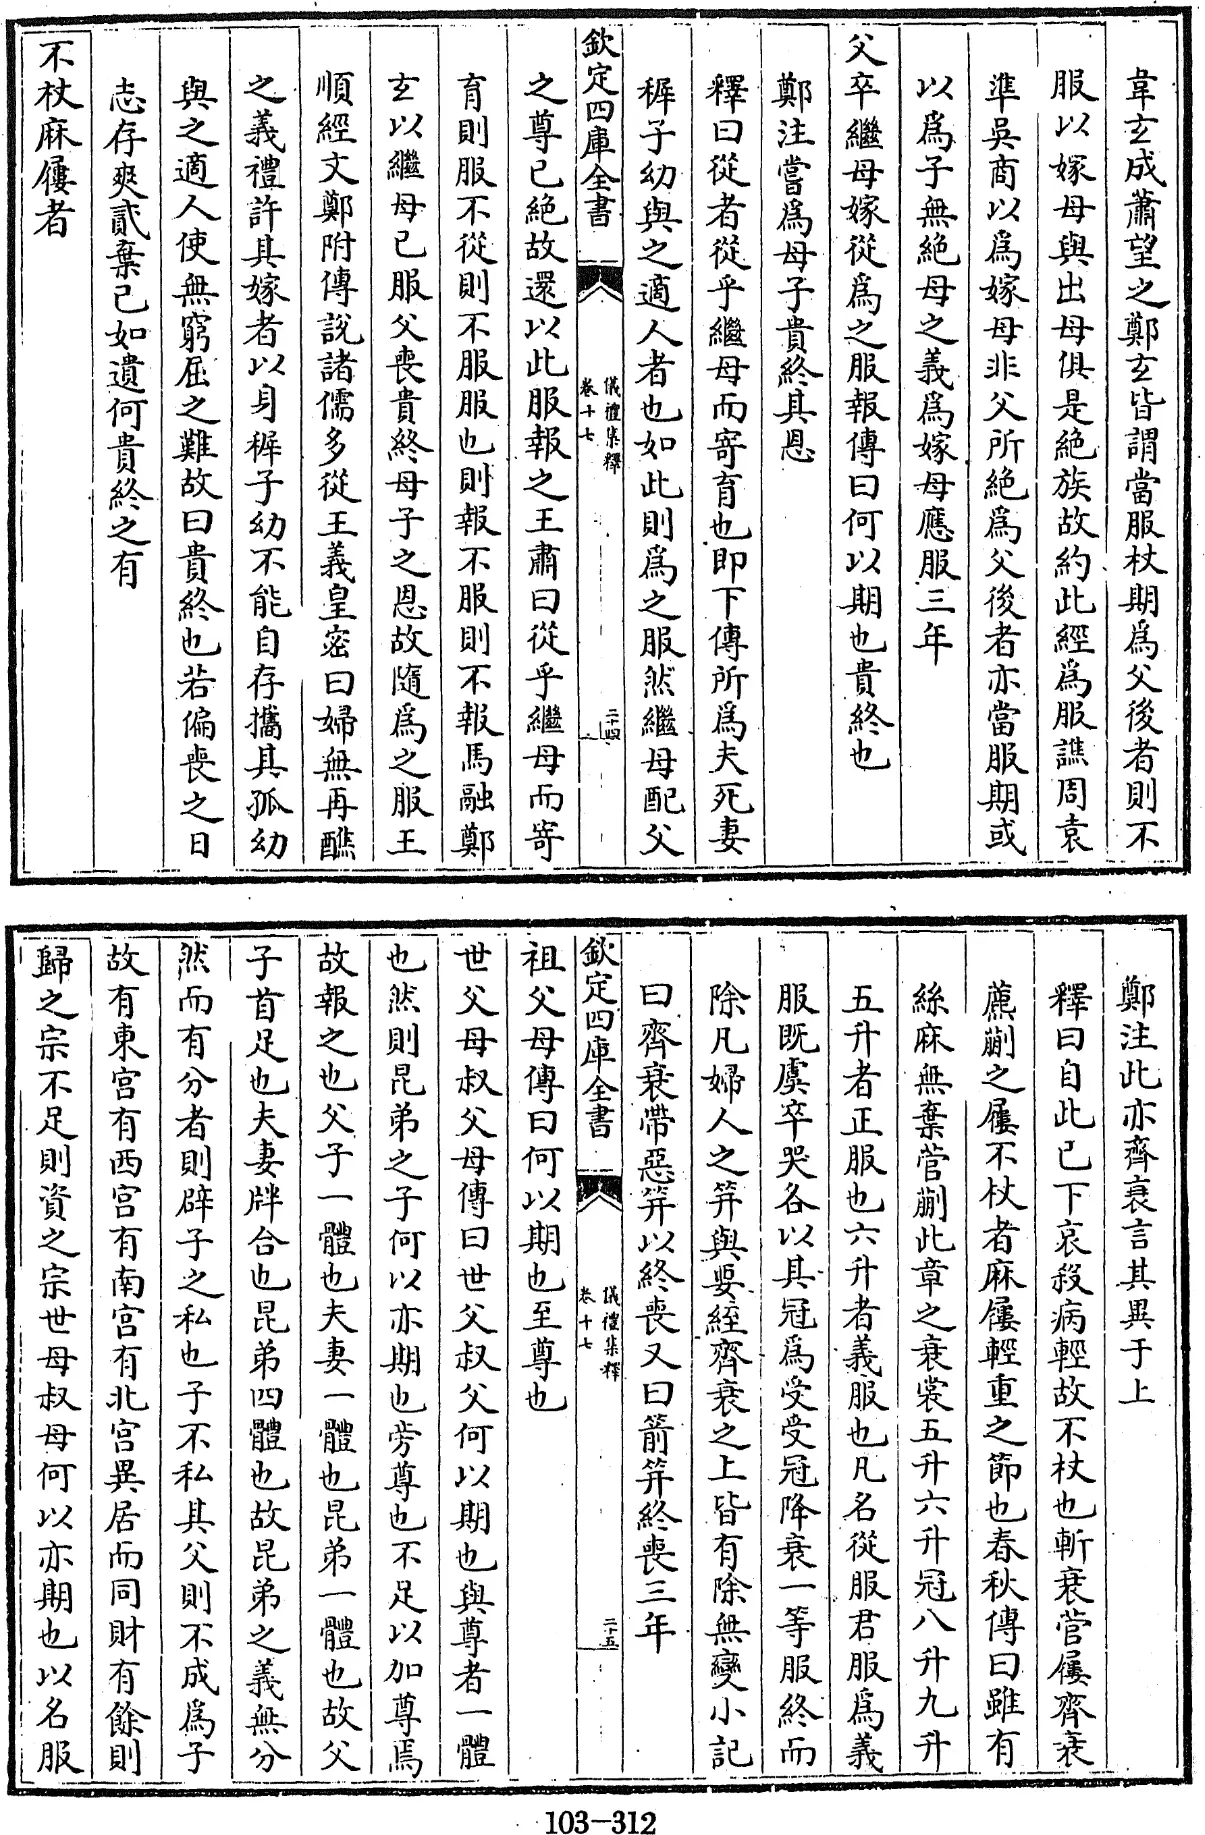 韋玄成蕭望之鄭玄皆謂當服杖期爲父後者則不
服以嫁母與出母俱是絶族故約此經爲服譙周袁
準吳商以爲嫁母非父所絶爲父後者亦當服期或
以爲子無絶母之義爲嫁母應服三年
父卒繼母嫁從爲之服報傳曰何以期也貴終也
鄭注嘗爲母子貴終其恩
釋曰從者從乎繼母而寄育也即下傳所爲夫死妻
穉子幼與之適人者也如此則爲之服然繼母配父
欽定四庫全書
儀禮集釋
卷十七
二十四
之尊已絶故還以此服報之王肅曰從乎繼母而寄
育則服不從則不服服也則報不服則不報馬融鄭
玄以繼母已服父喪貴終母子之恩故隨爲之服王
順經文鄭附傳說諸儒多從王義皇密曰婦無再醮
之義禮許其嫁者以身穉子幼不能自存攜其孤幼
與之適人使無窮屈之難故曰貴終也若偏喪之日
志存爽貳棄己如遺何貴終之有
不杖麻屨者
鄭注此亦齊衰言其異于上
釋曰自此已下哀殺病輕故不杖也斬衰菅屨齊衰
藨蒯之屨不杖者麻屨輕重之節也春秋傳曰雖有
絲麻無棄菅蒯此章之衰裳五升六升冠八升九升
五升者正服也六升者義服也凡名從服君服爲義
服既虞卒哭各以其冠爲受受冠降衰一等服終而
除凡婦人之笄與要絰齊衰之上皆有除無變小記
曰齊衰帶惡笄以終喪又曰箭笄終喪三年
欽定四庫全書
儀禮集釋
卷十七
二十五
祖父母傳曰何以期也至尊也
世父母叔父母傳曰世父叔父何以期也與尊者一體
也然則昆弟之子何以亦期也旁尊也不足以加尊焉
故報之也父子一體也夫妻一體也昆弟一體也故父
子首足也夫妻牉合也昆弟四體也故昆弟之義無分
然而有分者則辟子之私也子不私其父則不成爲子
故有東宮有西宮有南宮有北宮異居而同財有餘則
歸之宗不足則資之宗世母叔母何以亦期也以名服
103-312